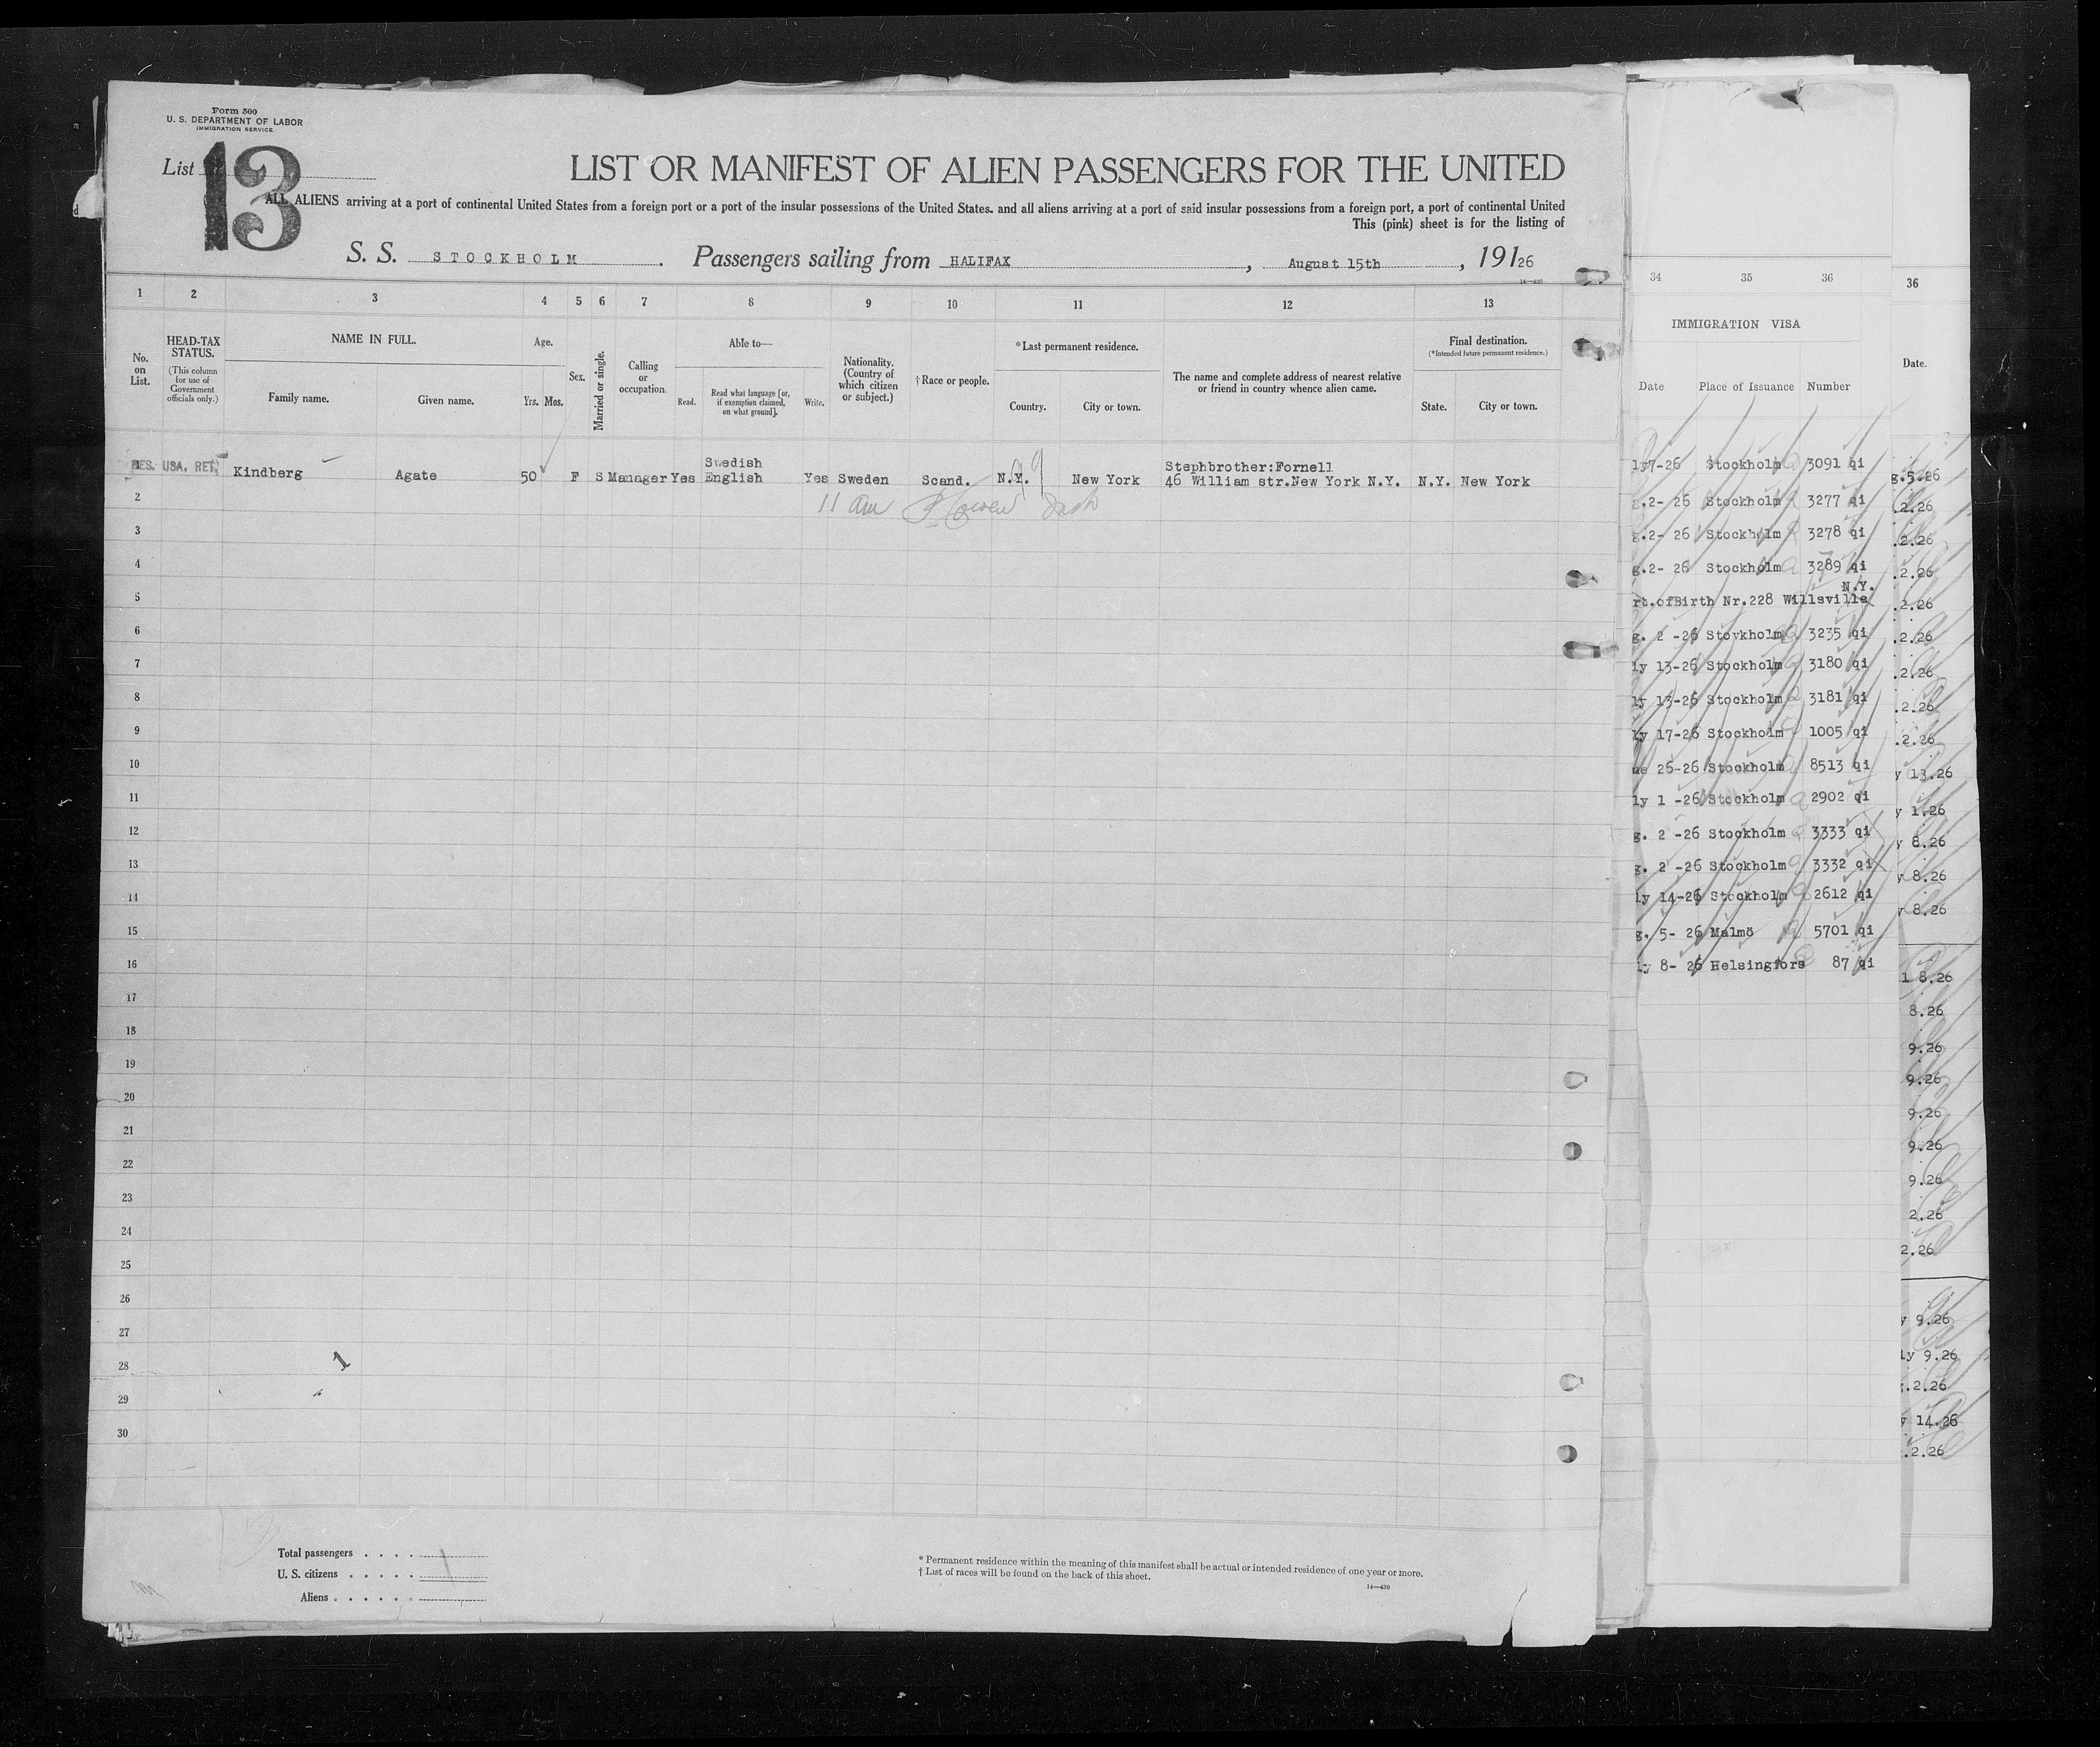 Form 500
U. S. DEPARTMENT OF LABOR
IMMIGRATION SERVICE
List 13
LIST OR MANIFEST OF ALIEN PASSENGERS FOR THE UNITED
ALL ALIENS arriving at a port of continental United States from a foreign port or a port of the insular possessions of the United States, and all aliens arriving at a port of said insular possessions from a foreign port, a port of continental United
This (pink) sheet is for the listing of
S. S. STOCKHOLM. Passengers sailing from HALIFAX, August 15th, 19126
14—430
1 2 3 4 5 6 7 8 9 10 11 12 13
No. on List.
HEAD-TAX STATUS.
(This column for use of Government officials only.)
NAME IN FULL.
Family name. Given name.
Age.
Yrs. Mos.
Sex.
Married or single.
Calling or occupation.
Able to—
Read. Read what language [or, if exemption claimed, on what ground]. Write.
Nationality. (Country of which citizen or subject.)
†Race or people.
*Last permanent residence.
Country. City or town.
The name and complete address of nearest relative or friend in country whence alien came.
Final destination.
(*Intended future permanent residence.)
State. City or town.
RES. USA. RET. Kindberg Agate 50 F S Manager Yes Swedish English Yes Sweden Scand. N.Y. New York Stephbrother:Fornell 46 William str.New York N.Y. N.Y. New York
11 am
2
3
4
5
6
7
8
9
10
11
12
13
14
15
16
17
18
19
20
21
22
23
24
25
26
27
28
29
30
1
Total passengers . . . . 1
U. S. citizens . . . . .
Aliens . . . . . .
* Permanent residence within the meaning of this manifest shall be actual or intended residence of one year or more.
† List of races will be found on the back of this sheet.
14—430
34 35 36
IMMIGRATION VISA
Date Place of Issuance Number
ly7-26 Stockholm 3091 qi
g.2- 26 Stockholm 3277 qi
g.2- 26 Stockholm 3278 qi
g.2- 26 Stockholm 3289 qi
N.Y.
rt.ofBirth Nr.228 Willsville
g. 2 -26 Stovkholm 3235 qi
ly 13-26 Stockholm 3180 qi
ly 13-26 Stockholm 3181 qi
ly 17-26 Stockholm 1005 qi
ne 26-26 Stockholm 8513 qi
ly 1 -26 Stockholm 2902 qi
g. 2 -26 Stockholm 3333 qi
g. 2 -26 Stockholm 3332 qi
ly 14-26 Stockholm 2612 qi
g. 5- 26 Malmö 5701 qi
ly 8- 26 Helsingfors 87 qi
36
Date.
g.5.26
.2.26
.2.26
.2.26
.2.26
.2.26
.2.26
.2.26
.2.26
y 13.26
y 1.26
y 8.26
y 8.26
y 8.26
l 8.26
8.26
9.26
9.26
9.26
9.26
9.26
2.26
2.26
y 9.26
ly 9.26
.2.26
y 14.26
.2.26